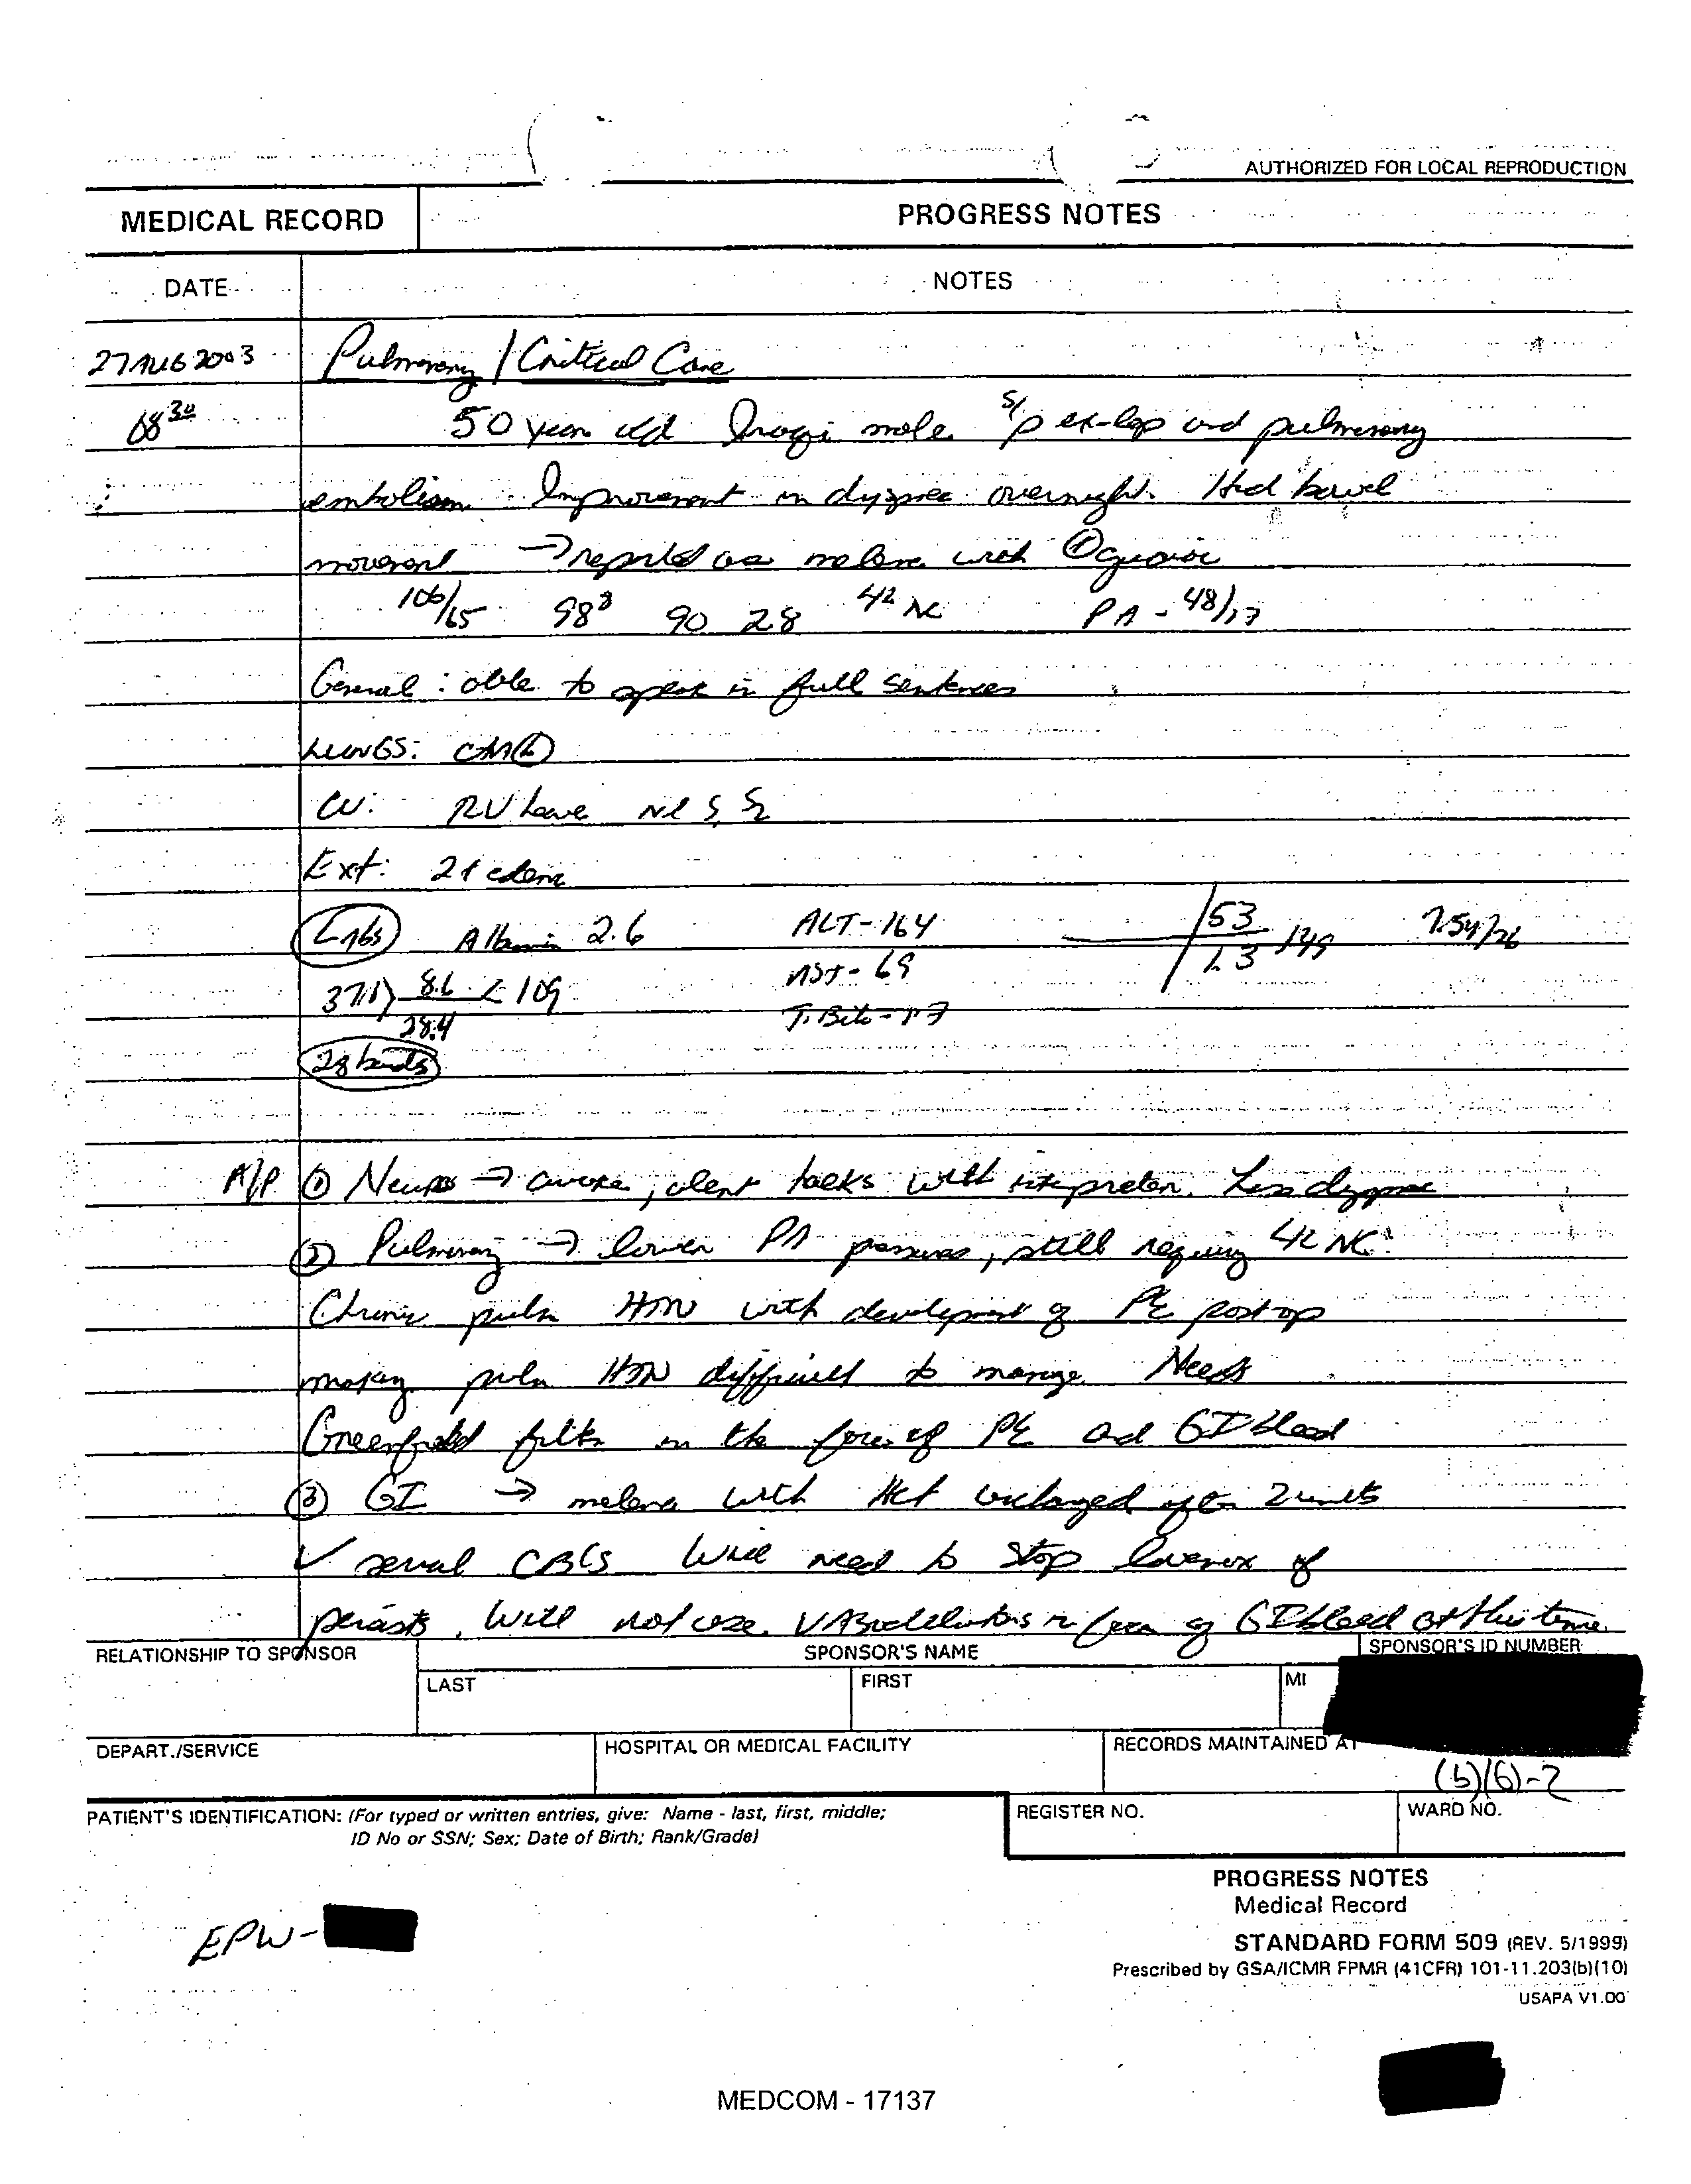 AUTHORIZED FOR LOCAL REPRODUCTION
MEDICAL RECORD
PROGRESS NOTES
DATE
NOTES
27 AUG 2003
Pulmonary / Critical Care
08 30
50 year old Iraqi male s/p ex-lap and pulmonary
embolism. Improvement in dyspnea overnight. Had bowel
movement → reported as melena with + guaiac
106/65 98 8 90 28 4L NC PA - 48/17
General: able to speak in full sentences
LUNGS: CTA
CV: RV heave Nl S1 S2
Ext: 2+ edema
Labs Albumin 2.6 ALT-164 53 149 7.54/26
1.3
37.1 8.6 < 109 AST-69
28.4 T. Bili - 1.7
28 bands
A/P ① Neuro → awake, alert talks with interpreter. Less dyspnea
② Pulmonary → lower PA pressures, still requiring 4L NC
Chronic pulm HTN with development of PE post op
making pulm HTN difficult to manage. Needs
Greenfield filter in the face of PE and GI bleed
③ GI → melena with Hct unchanged after 2 units
✓ serial CBCs Will need to stop lovenox if
persists. Will not use VASodilators in face of GI bleed at this time
RELATIONSHIP TO SPONSOR
SPONSOR'S NAME
SPONSOR'S ID NUMBER
LAST
FIRST
MI
DEPART./SERVICE
HOSPITAL OR MEDICAL FACILITY
RECORDS MAINTAINED AT
(b)(6)-2
PATIENT'S IDENTIFICATION: (For typed or written entries, give: Name - last, first, middle;
ID No or SSN; Sex; Date of Birth; Rank/Grade)
REGISTER NO.
WARD NO.
PROGRESS NOTES
Medical Record
EPW-
STANDARD FORM 509 (REV. 5/1999)
Prescribed by GSA/ICMR FPMR (41CFR) 101-11.203(b)(10)
USAPA V1.00
MEDCOM - 17137